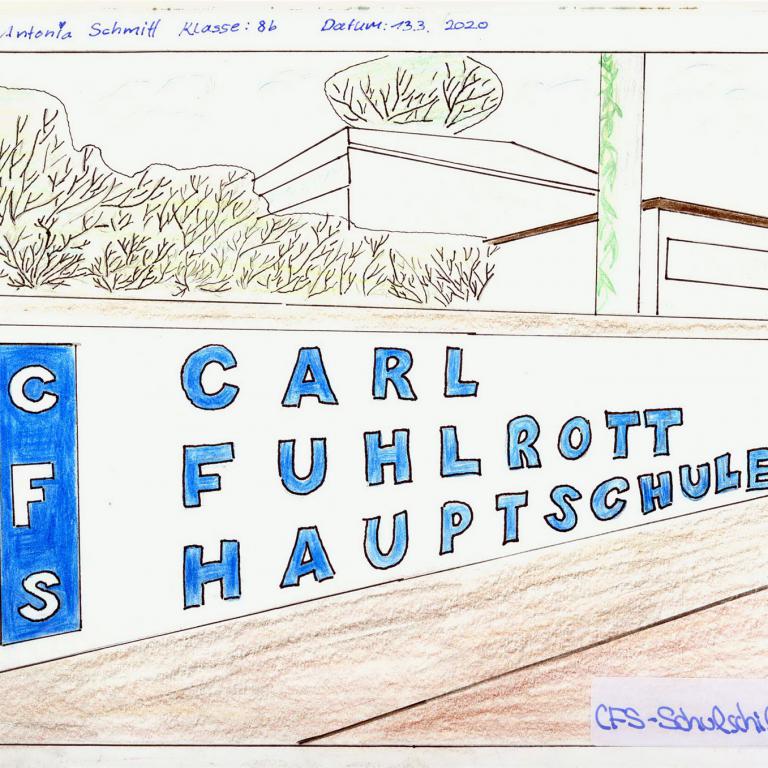 Antonia Schmitt Klasse: 8b Datum: 13.3. 2020
CFS
CARL
FUHLROTT
HAUPTSCHULE